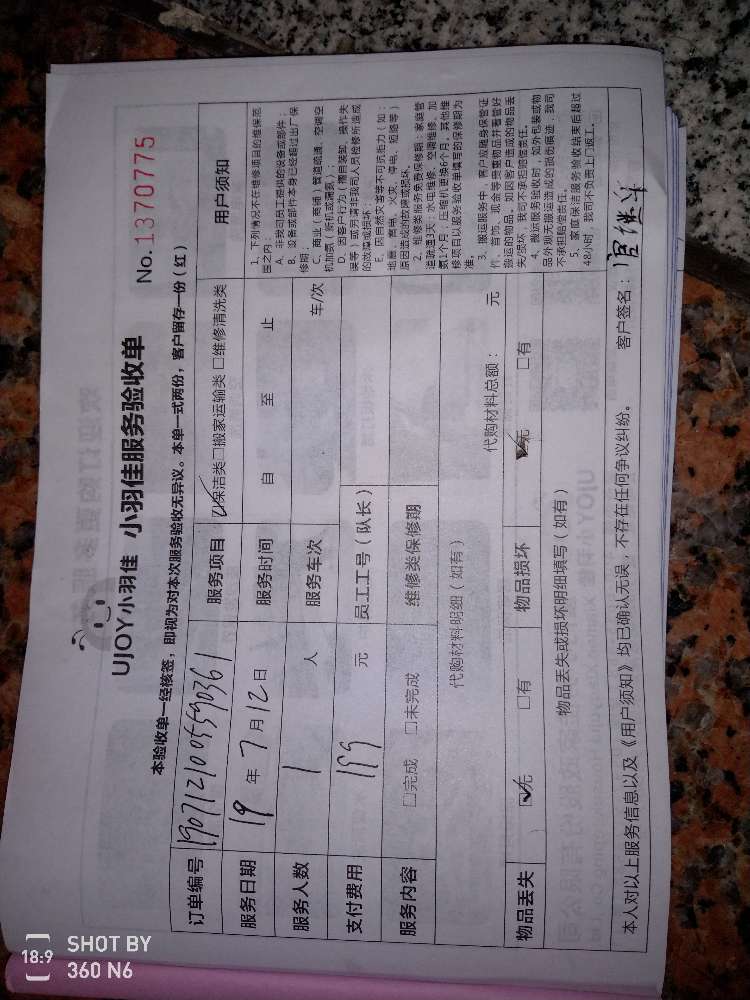 UJOY小羽佳 小羽佳服务验收单
No.1370775
本验收单一经核签，即视为对本次服务验收无异议。本单一式两份，客户留存一份（红）
订单编号 1907121005590361 服务项目 保洁类 □搬家运输类 □维修清洗类 用户须知
服务日期 19 年 7 月 12 日 服务时间 自 至 止
服务人数 1 人 服务车次 车/次
支付费用 199 元 员工工号（队长）
服务内容 □完成 □未完成 维修类保修期
代购材料明细（如有） 代购材料总额： 元
物品丢失 无 □有 物品损坏 无 □有
物品丢失或损坏明细填写（如有）
1、下列情况不在维修项目的维保范
围之内：
A、非我司员工提供的设备或部件；
B、设备或部件本身已经超过出厂保
修期；
C、商业（商铺）管道疏通、空调空
机加氨（新机或漏氨）；
D、因客户行为（擅自装卸、操作失
误等）或另请非我司人员检修所造成
的故障或损坏；
E、因自然灾害等不可抗拒力（如：
地震、雷电、火灾、停电、短路等）
原因造成的故障或损坏。
2、维修类服务免费保修期：家庭管
道疏通3天；水电维修、空调维修、加
氨1个月；压缩机更换6个月，其他维
修项目以服务验收单填写的保修期为
准。
3、搬运服务中，客户应随身保管证
件、首饰、现金等贵重物品并看管好
搬运的物品。如因客户造成的物品丢
失/损坏，我司不承担赔偿责任。
4、搬运服务验收时，如外包装或物
品外观无搬运造成的损伤痕迹，我司
不承担赔偿责任。
5、家庭保洁服务验收结束后超过
48小时，我司不负责上门返工。
本人对以上服务信息以及《用户须知》均已确认无误，不存在任何争议纠纷。 客户签名：
18:9 SHOT BY
360 N6